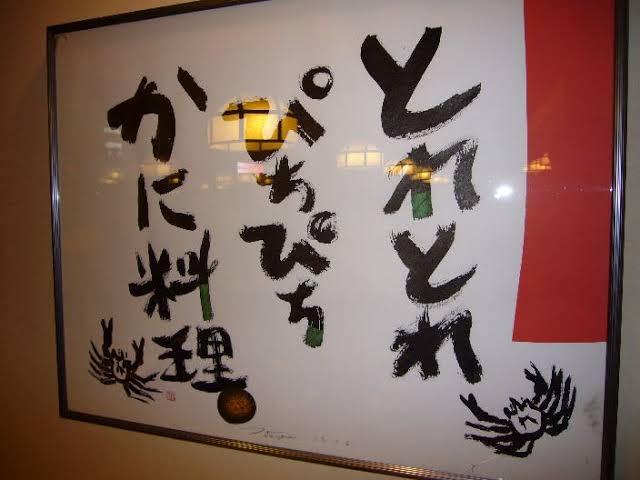 とれとれ
ぴちぴち
かに料理